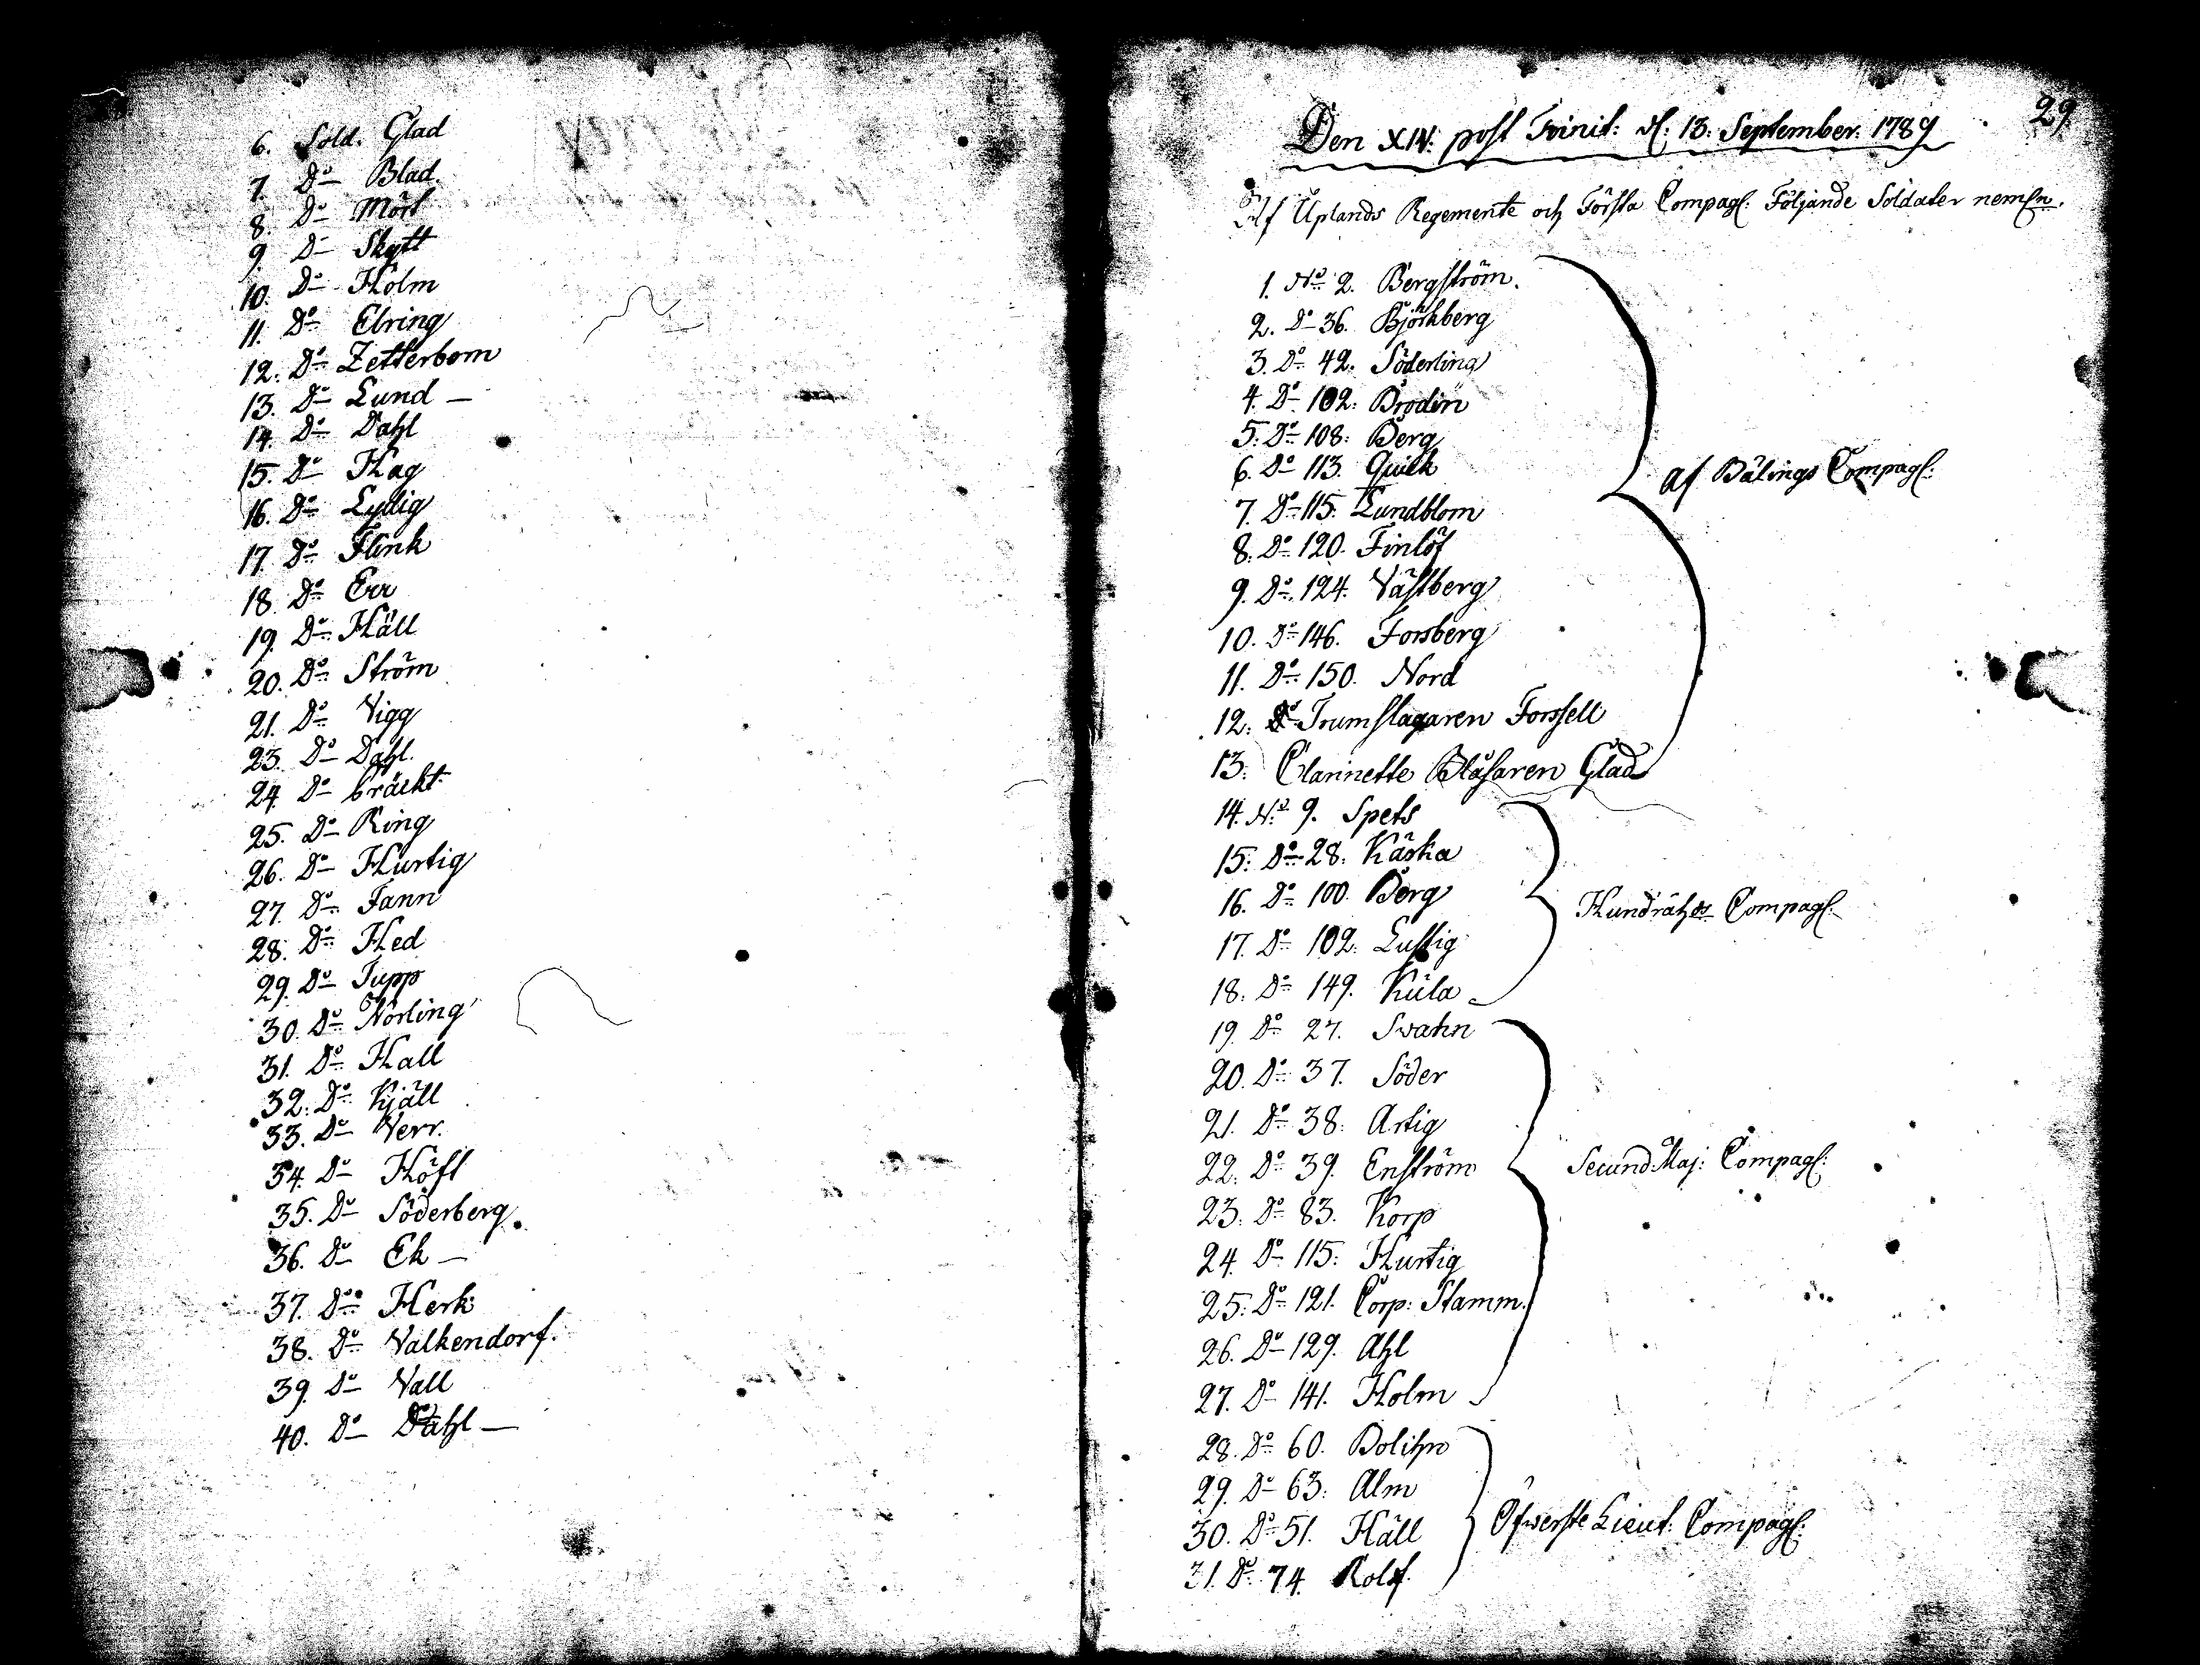 6. Sold. Glad
7. Do Blad.
8. Do Mört
9. Do Skytt
10. Do Holm
11. Do Elring
12. Do Zetterbom
13. Do Lund —
14. Do Dahl
15. Do Hag
16. Do Lydig
17. Do Flink
18. Do Err
19. Do Häll
20. Do Ström
21. Do Vigg
23. Do Dahl.
24. Do bräckt
25. Do Ring
26. Do Hurtig
27. Do Fann
28. Do Hed
29. Do Tupp
30. Do Norling
31. Do Hall
32. Do Kjäll
33. Do Verr.
34. Do Höft
35. Do Söderberg.
36. Do Ek —
37. Do Herk
38. Do Valkendorf.
39. Do Vall
40. Do Dahl —
29.
Den XIV: post Trinit: d: 13: September. 1789
Af Uplands Regemente och Första Compag: Följande Soldater neml:n.
1. No 2. Bergström.
2. Do 36. Björkberg
3. Do 42. Söderling
4. Do 102: Brodin
5. Do 108: Berg
6. Do 113. Quick
af Bälings Compag:
7. Do 115. Lundblom
8. Do 120. Finlöf
9. Do 124. Västberg
10. Do 146. Forsberg
11. Do 150. Nord
12. Trumslagaren Forssell
13: Clarinette Blåsaren Glad
14. No 9. Spets
15: Do 28: Käska
16. Do 100. Berg
Hundrahds Compag:
17. Do 102. Lustig
18. Do 149. Kula
19. Do 27. Svahn
20. Do 37. Söder
21. Do 38: Artig
22. Do 39. Enström
Secund Maj: Compag:
23. Do 83. Korp
24. Do 115: Hurtig
25: Do 121. Corp: Stamm.
26. Do 129. Ahl
27. Do 141. Holm
28. Do 60. Bolihn
29. Do 63: Alm
30. Do 51. Häll
Öfwerste Lieut: Compag:
31. Do 74. Rolf.